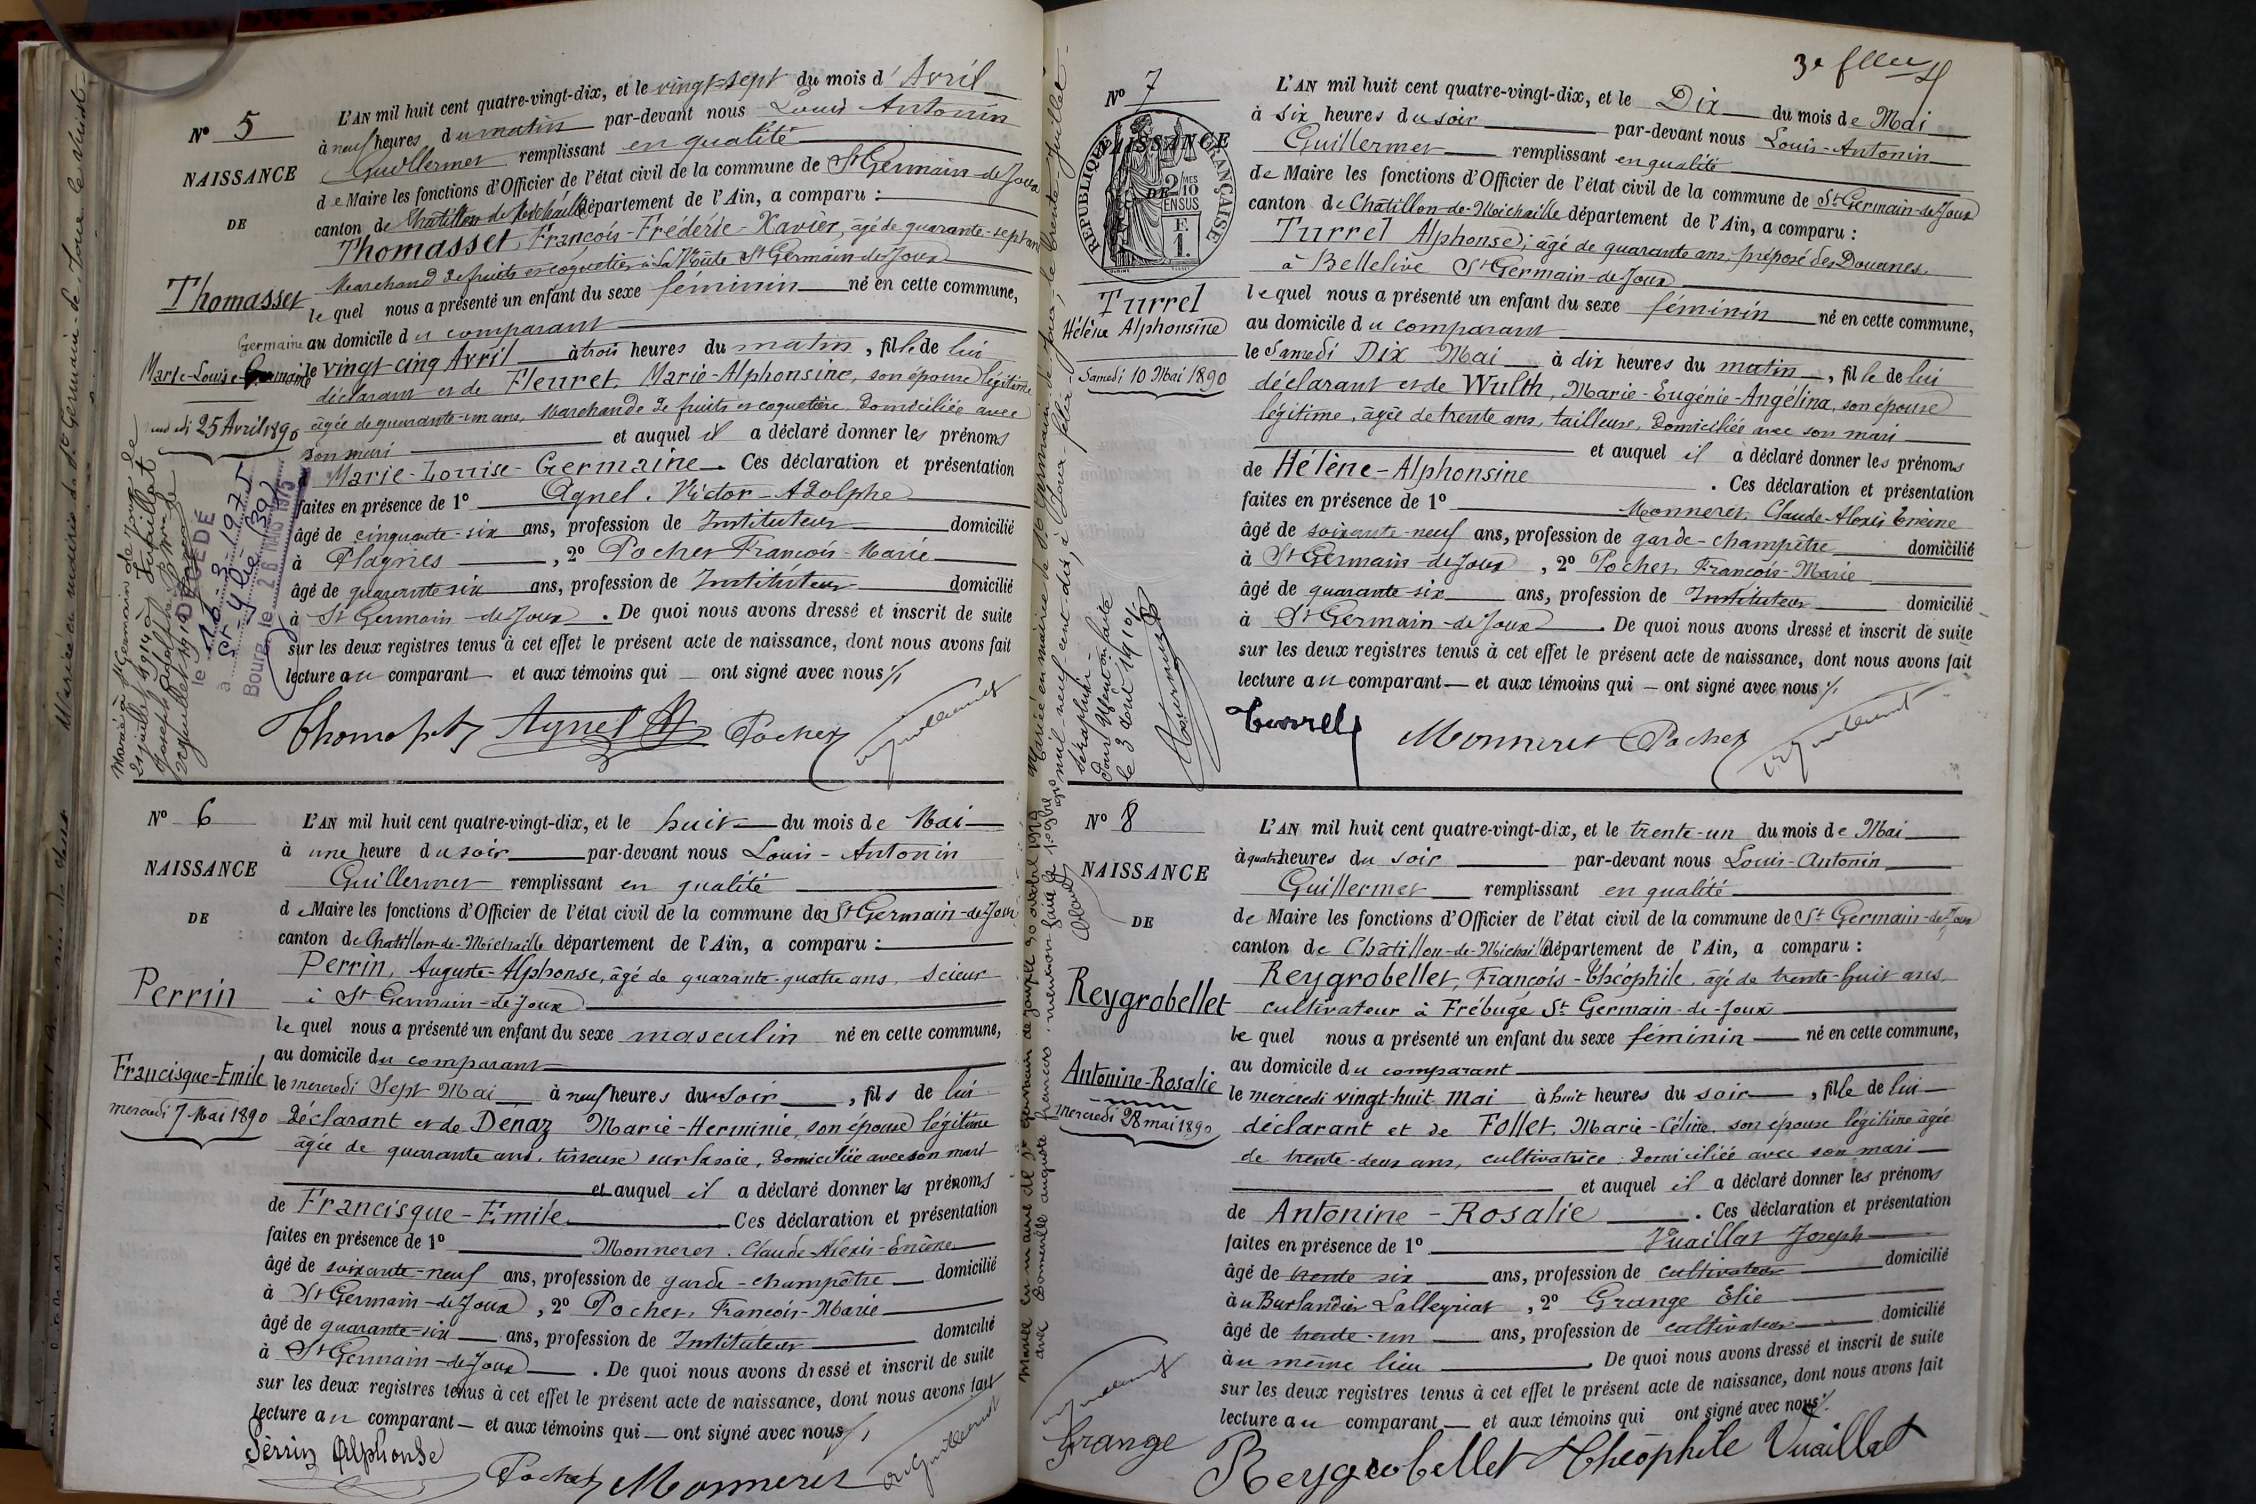 Nº 5
NAISSANCE
DE
Thomasset
Germaine
Marie-Louise-
25 Avril 1890
L'AN mil huit cent quatre-vingt-dix, et le vingt-sept du mois d'Avril
à neuf heures du matin par-devant nous Louis Antonin
Guillermet remplissant en qualité
de Maire les fonctions d'Officier de l'état civil de la commune de St Germain-de-Joux
canton de Châtillon-de-Michaille département de l'Ain, a comparu :
Thomasset, François-Frédéric-Xavier, âgé de quarante-sept ans
Marchand de fruits et coquetier à la Voûte St Germain-de-Joux
lequel nous a présenté un enfant du sexe féminin né en cette commune,
au domicile du comparant
le vingt-cinq Avril à trois heures du matin, fille de lui
déclarant et de Fleuret, Marie-Alphonsine, son épouse légitime
âgée de quarante-un ans, Marchande de fruits et coquetière, domiciliée avec
son mari et auquel il a déclaré donner les prénoms
Marie-Louise-Germaine. Ces déclaration et présentation
faites en présence de 1º Agnel, Victor-Adolphe
âgé de cinquante-six ans, profession de Instituteur domicilié
à Plagnes, 2º Pochet François-Marie
âgé de quarante six ans, profession de Instituteur domicilié
à St Germain-de-Joux. De quoi nous avons dressé et inscrit de suite
sur les deux registres tenus à cet effet le présent acte de naissance, dont nous avons fait
lecture au comparant et aux témoins qui ont signé avec nous
DÉCÉDÉ
le 16-3-1975
à St-Ylie (39)
Bourg, le 26 MARS 1975
Mariée à St Germain de Joux le
Thomasset Agnel Pochet Guillermet
Nº 6
NAISSANCE
DE
Perrin
Francisque-Emile
mercredi 7 Mai 1890
L'AN mil huit cent quatre-vingt-dix, et le huit du mois de Mai
à une heure du soir par-devant nous Louis-Antonin
Guillermet remplissant en qualité
de Maire les fonctions d'Officier de l'état civil de la commune de St Germain-de-Joux
canton de Chatillon-de-Michaille département de l'Ain, a comparu :
Perrin, Auguste-Alphonse, âgé de quarante-quatre ans, scieur
à St Germain-de-Joux
lequel nous a présenté un enfant du sexe masculin né en cette commune,
au domicile du comparant
le mercredi Sept Mai à neuf heures du soir, fils de lui
déclarant et de Denaz Marie-Herminie, son épouse légitime
âgée de quarante ans, tisseuse sur la soie, domiciliée avec son mari
et auquel il a déclaré donner les prénoms
de Francisque-Emile Ces déclaration et présentation
faites en présence de 1º Monneret, Claude-Alexis-
âgé de soixante-neuf ans, profession de garde-champêtre domicilié
à St Germain-de-Joux, 2º Pochet, François-Marie
âgé de quarante-six ans, profession de Instituteur domicilié
à St Germain-de-Joux. De quoi nous avons dressé et inscrit de suite
sur les deux registres tenus à cet effet le présent acte de naissance, dont nous avons fait
lecture au comparant et aux témoins qui ont signé avec nous
Perrin Alphonse Pochet Monneret Guillermet
Nº 7
NAISSANCE
DE
RÉPUBLIQUE FRANÇAISE
2/10 MES
EN SUS
1 F.
Turrel
Hélène Alphonsine
Samedi 10 Mai 1890
L'AN mil huit cent quatre-vingt-dix, et le Dix du mois de Mai
à six heures du soir par-devant nous Louis-Antonin
Guillermet remplissant en qualité
de Maire les fonctions d'Officier de l'état civil de la commune de St Germain-de-Joux
canton de Châtillon-de-Michaille département de l'Ain, a comparu :
Turrel Alphonse, âgé de quarante ans, préposé des Douanes
à Bellelive St Germain-de-Joux
lequel nous a présenté un enfant du sexe féminin né en cette commune,
au domicile du comparant
le Samedi Dix Mai à dix heures du matin, fille de lui
déclarant et de Wulth, Marie-Eugénie-Angélina, son épouse
légitime, âgée de trente ans, tailleuse, domiciliée avec son mari
et auquel il a déclaré donner les prénoms
de Hélène-Alphonsine. Ces déclaration et présentation
faites en présence de 1º Monneret, Claude-Alexis
âgé de soixante-neuf ans, profession de garde-champêtre domicilié
à St Germain-de-Joux, 2º Pochet, François-Marie
âgé de quarante-six ans, profession de Instituteur domicilié
à St Germain-de-Joux. De quoi nous avons dressé et inscrit de suite
sur les deux registres tenus à cet effet le présent acte de naissance, dont nous avons fait
lecture au comparant et aux témoins qui ont signé avec nous
Turrel Monneret Pochet Guillermet
Nº 8
NAISSANCE
DE
Reygrobellet
Antonine-Rosalie
mercredi 28 mai 1890
L'AN mil huit cent quatre-vingt-dix, et le trente-un du mois de Mai
à quatre heures du soir par-devant nous Louis-Antonin
Guillermet remplissant en qualité
de Maire les fonctions d'Officier de l'état civil de la commune de St Germain-de-Joux
canton de Châtillon-de-Michaille département de l'Ain, a comparu :
Reygrobellet, François-Théophile, âgé de trente-huit ans,
cultivateur à Frébuge St Germain-de-Joux
lequel nous a présenté un enfant du sexe féminin né en cette commune,
au domicile du comparant
le mercredi vingt-huit Mai à huit heures du soir, fille de lui
déclarant et de Follet, Marie-Céline, son épouse légitime âgée
de trente-deux ans, cultivatrice, domiciliée avec son mari
et auquel il a déclaré donner les prénoms
de Antonine-Rosalie. Ces déclaration et présentation
faites en présence de 1º Vuaillat Joseph
âgé de trente six ans, profession de cultivateur domicilié
au Burlandier Lalleyriat, 2º Grange Elie
âgé de trente-un ans, profession de cultivateur domicilié
au même lieu. De quoi nous avons dressé et inscrit de suite
sur les deux registres tenus à cet effet le présent acte de naissance, dont nous avons fait
lecture au comparant et aux témoins qui ont signé avec nous
Guillermet
Grange Reygrobellet Théophile Vuaillat